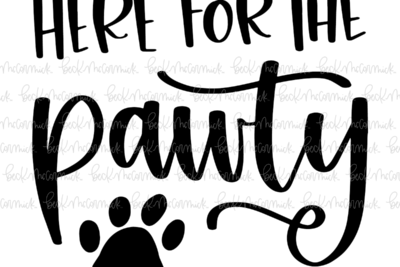 HERE FOR THE
pawty